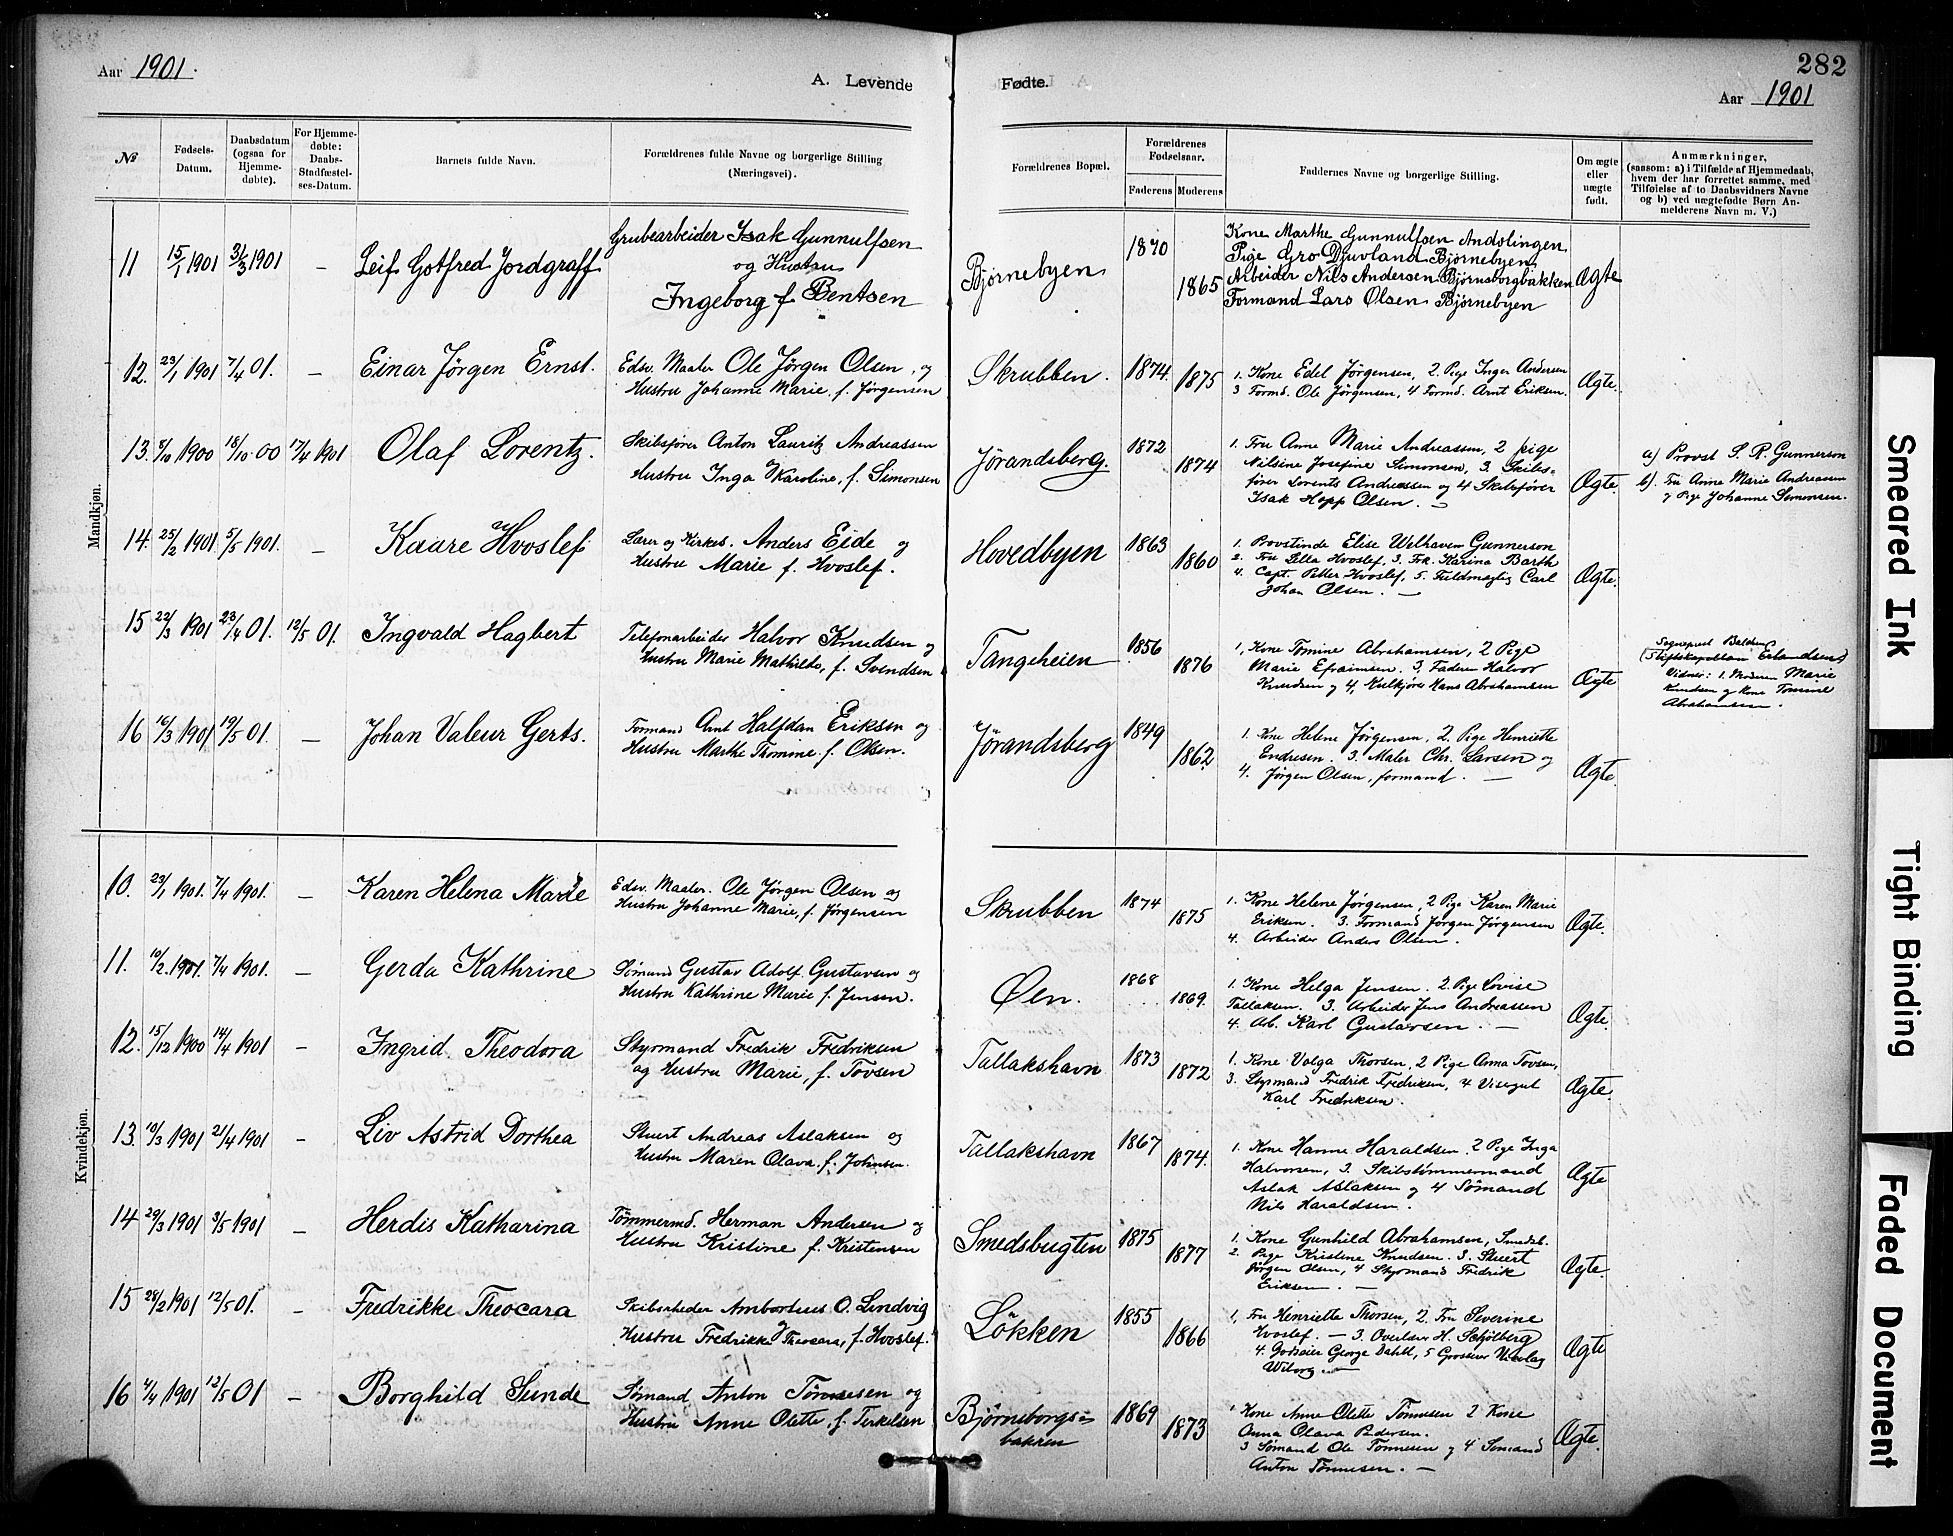 282
Aar 1901.
A. Levende Fødte.
Aar 1901
№
Fødsels-Datum.
Daabsdatum (ogsaa for Hjemme-døbte).
For Hjemme-døbte: Daabs-Stadfæstel-ses-Datum.
Barnets fulde Navn.
Forældrenes fulde Navne og borgerlige Stilling (Næringsvei).
Forældrenes Bopæl.
Forældrenes Fødselsaar.
Faderens Moderens
Faddernes Navne og borgerlige Stilling.
Om ægte eller uægte født.
Anmærkninger,
(saasom: a) i Tilfælde af Hjemmedaab,
hvem der har forrettet samme, med
Tilføielse af to Daabsvidners Navne
og b) ved uægtefødte Børn An-
melderens Navn m. V.)
Mandkjøn.
11 15/1 1901 31/3 1901 — Leif Gotfred Jordgraff
Grubearbeider Isak Gunnulfsen
og Hustru
Ingeborg f. Bentsen
Bjørnebyen 1870 1865
Kone Marthe Gunnulfsen Andslingen
Pige Gro Djuvland Bjørnebyen
Arbeider Nils Andersen Bjørnsborgbakken
Formand Lars Olsen Bjørnebyen
Ægte
12. 23/1 1901 7/4 01. — Einar Jørgen Ernst.
Edsv. Maaler Ole Jørgen Olsen, og
Hustru Johanne Marie, f. Jørgensen
Skrubben. 1874. 1875
1. Kone Edel Jørgensen, 2. Pige Inger Andersen
3 Formd. Ole Jørgensen, 4 Formd. Arnt Eriksen.
Ægte.
13. 8/10 1900 18/10 00 17/4 1901 Olaf Lorentz.
Skibsfører Anton Lauritz Andreassen
og
Hustru Inga Karoline, f. Simonsen
Jørandsberg. 1872 1874
1. Fru Anne Marie Andreassen, 2 pige
Nilsine Josefine Simonsen, 3. Skibs-
fører Lorents Andreassen og 4 Skibsfører
Isak Hopp Olsen. —
Ægte.
a) Provst S. R. Gunnerson
b). Fru Anne Marie Andreassen
og Pige Johanne Simonsen.
14. 25/2 1901. 5/5 1901. — Kaare Hvoslef.
Lærer og Kirkes. Anders Eide og
Hustru Marie f. Hvoslef.
Hovedbyen 1863 1860
1. Provstinde Elise Welhaven Gunnerson
2. Fru Lilla Hvoslef, 3. Frk. Karina Barth
4. Capt. Peter Hvoslef, 5. Fuldmægtig Carl
Johan Olsen. —
Ægte.
15 22/3 1901 23/4 01. 12/5 01. Ingvald Hagbert
Telefonarbeider Halvor Knudsen og
Hustru Marie Mathilde, f. Svendsen
Tangeheien 1856 1876
1, Kone Tomine Abrahamsen, 2 Pige
Marie Efraimsen. 3, Faderen Halvor
Knudsen og 4, Kulkjører Hans Abrahamsen
Ægte
(Stiftskapellan Erlandsen)
Vidner: 1. Moderen Marie
Knudsen og Kone Tomine
Abrahamsen.
16 16/3 1901 19/5 01. — Johan Valeur Gerts.
Formand Arnt Halfdan Eriksen og
Hustru Marthe Thomine f. Olsen.
Jørandsberg 1849 1862
1. Kone Helene Jørgensen, 2. Pige Henriette
Endresen. 3. Maler Chr. Larsen og
4. Jørgen Olsen, formand. —
Ægte.
Kvindekjøn.
10. 23/1 1901. 7/4 1901. — Karen Helena Marie
Edsv. Maaler. Ole Jørgen Olsen og
Hustru Johanne Marie, f. Jørgensen
Skrubben 1874 1875
1. Kone Helene Jørgensen, 2 Pige Karen Marie
Eriksen. 3. Formand Jørgen Jørgensen
4. Arbeider Anders Olsen.
Ægte.
11. 10/2. 1901. 7/4 1901. — Gerda Kathrine
Sømand Gustav Adolf Gustavsen og
Hustru Kathrine Marie f. Jensen.
Øen. 1868 1869.
1. Kone Helga Jensen. 2. Pige Lovise
Tallaksen. 3. Arbeider Jens Andreassen
4. Arb. Karl Gustavsen. —
Ægte.
12. 15/12 1900 14/4 1901 — Ingrid. Theodora
Styrmand Fredrik Fredriksen
og Hustru Marie, f. Tovsen
Tallakshavn 1873 1872
1. Kone Valga Thorsen, 2 Pige Anna Tovsen,
3. Styrmand Fredrik Fredriksen, 4 Visergut
Karl Fredriksen.
Ægte.
13. 10/3 1901 21/4 1901 — Liv Astrid Dorthea
Stuert Andreas Aslaksen og
Hustru Maren Olava, f. Johnsen.
Tallakshavn 1867 1874.
1. Kone Hanne Haraldsen. 2 Pige Inga
Halvorsen, 3. Skibstømmermand
Aslak Aslaksen og 4 Sømand
Nils Haraldsen.
Ægte
14 29/3 1901 3/5 1901 — Herdis Katharina
Tømmermd. Herman Andersen og
Hustru Kristine f. Kristensen
Smedsbugten 1875 1877
1. Kone Gunhild Abrahamsen, Smedsb.
2. Pige Kristine Knudsen. 3. Stuert
Jørgen Olsen, 4 Styrmand Fredrik
Eriksen. —
Ægte.
15 28/2 1901 12/5 01. — Fredrikke Theocara
Skibsreder Ambortius O. Lindvig
og
Hustru Fredrikke Theocara, f. Hvoslef.
Løkken 1855 1866
1, Fru Henriette Thorsen, 2. Fru Severine
Hvoslef. — 3. Overlærer H. Schjølberg
4. Godseier George Dahll, 5 Grosserer Nicolay
Wiborg. —
Ægte
16 4/4 1901 12/5 01 — Borghild Sunde
Sømand Anton Tønnesen og
Hustru Anne Olette, f. Terkelsen
Bjørneborgs-
bakken 1869 1873
1 Kone Anne Olette Tønnesen 2 Kone
Anna Olava Pedersen.
3 Sømand Ole Tønnesen og 4 Sømand
Anton Tønnesen. —
Ægte.
Smeared Ink
Tight Binding
Faded Document